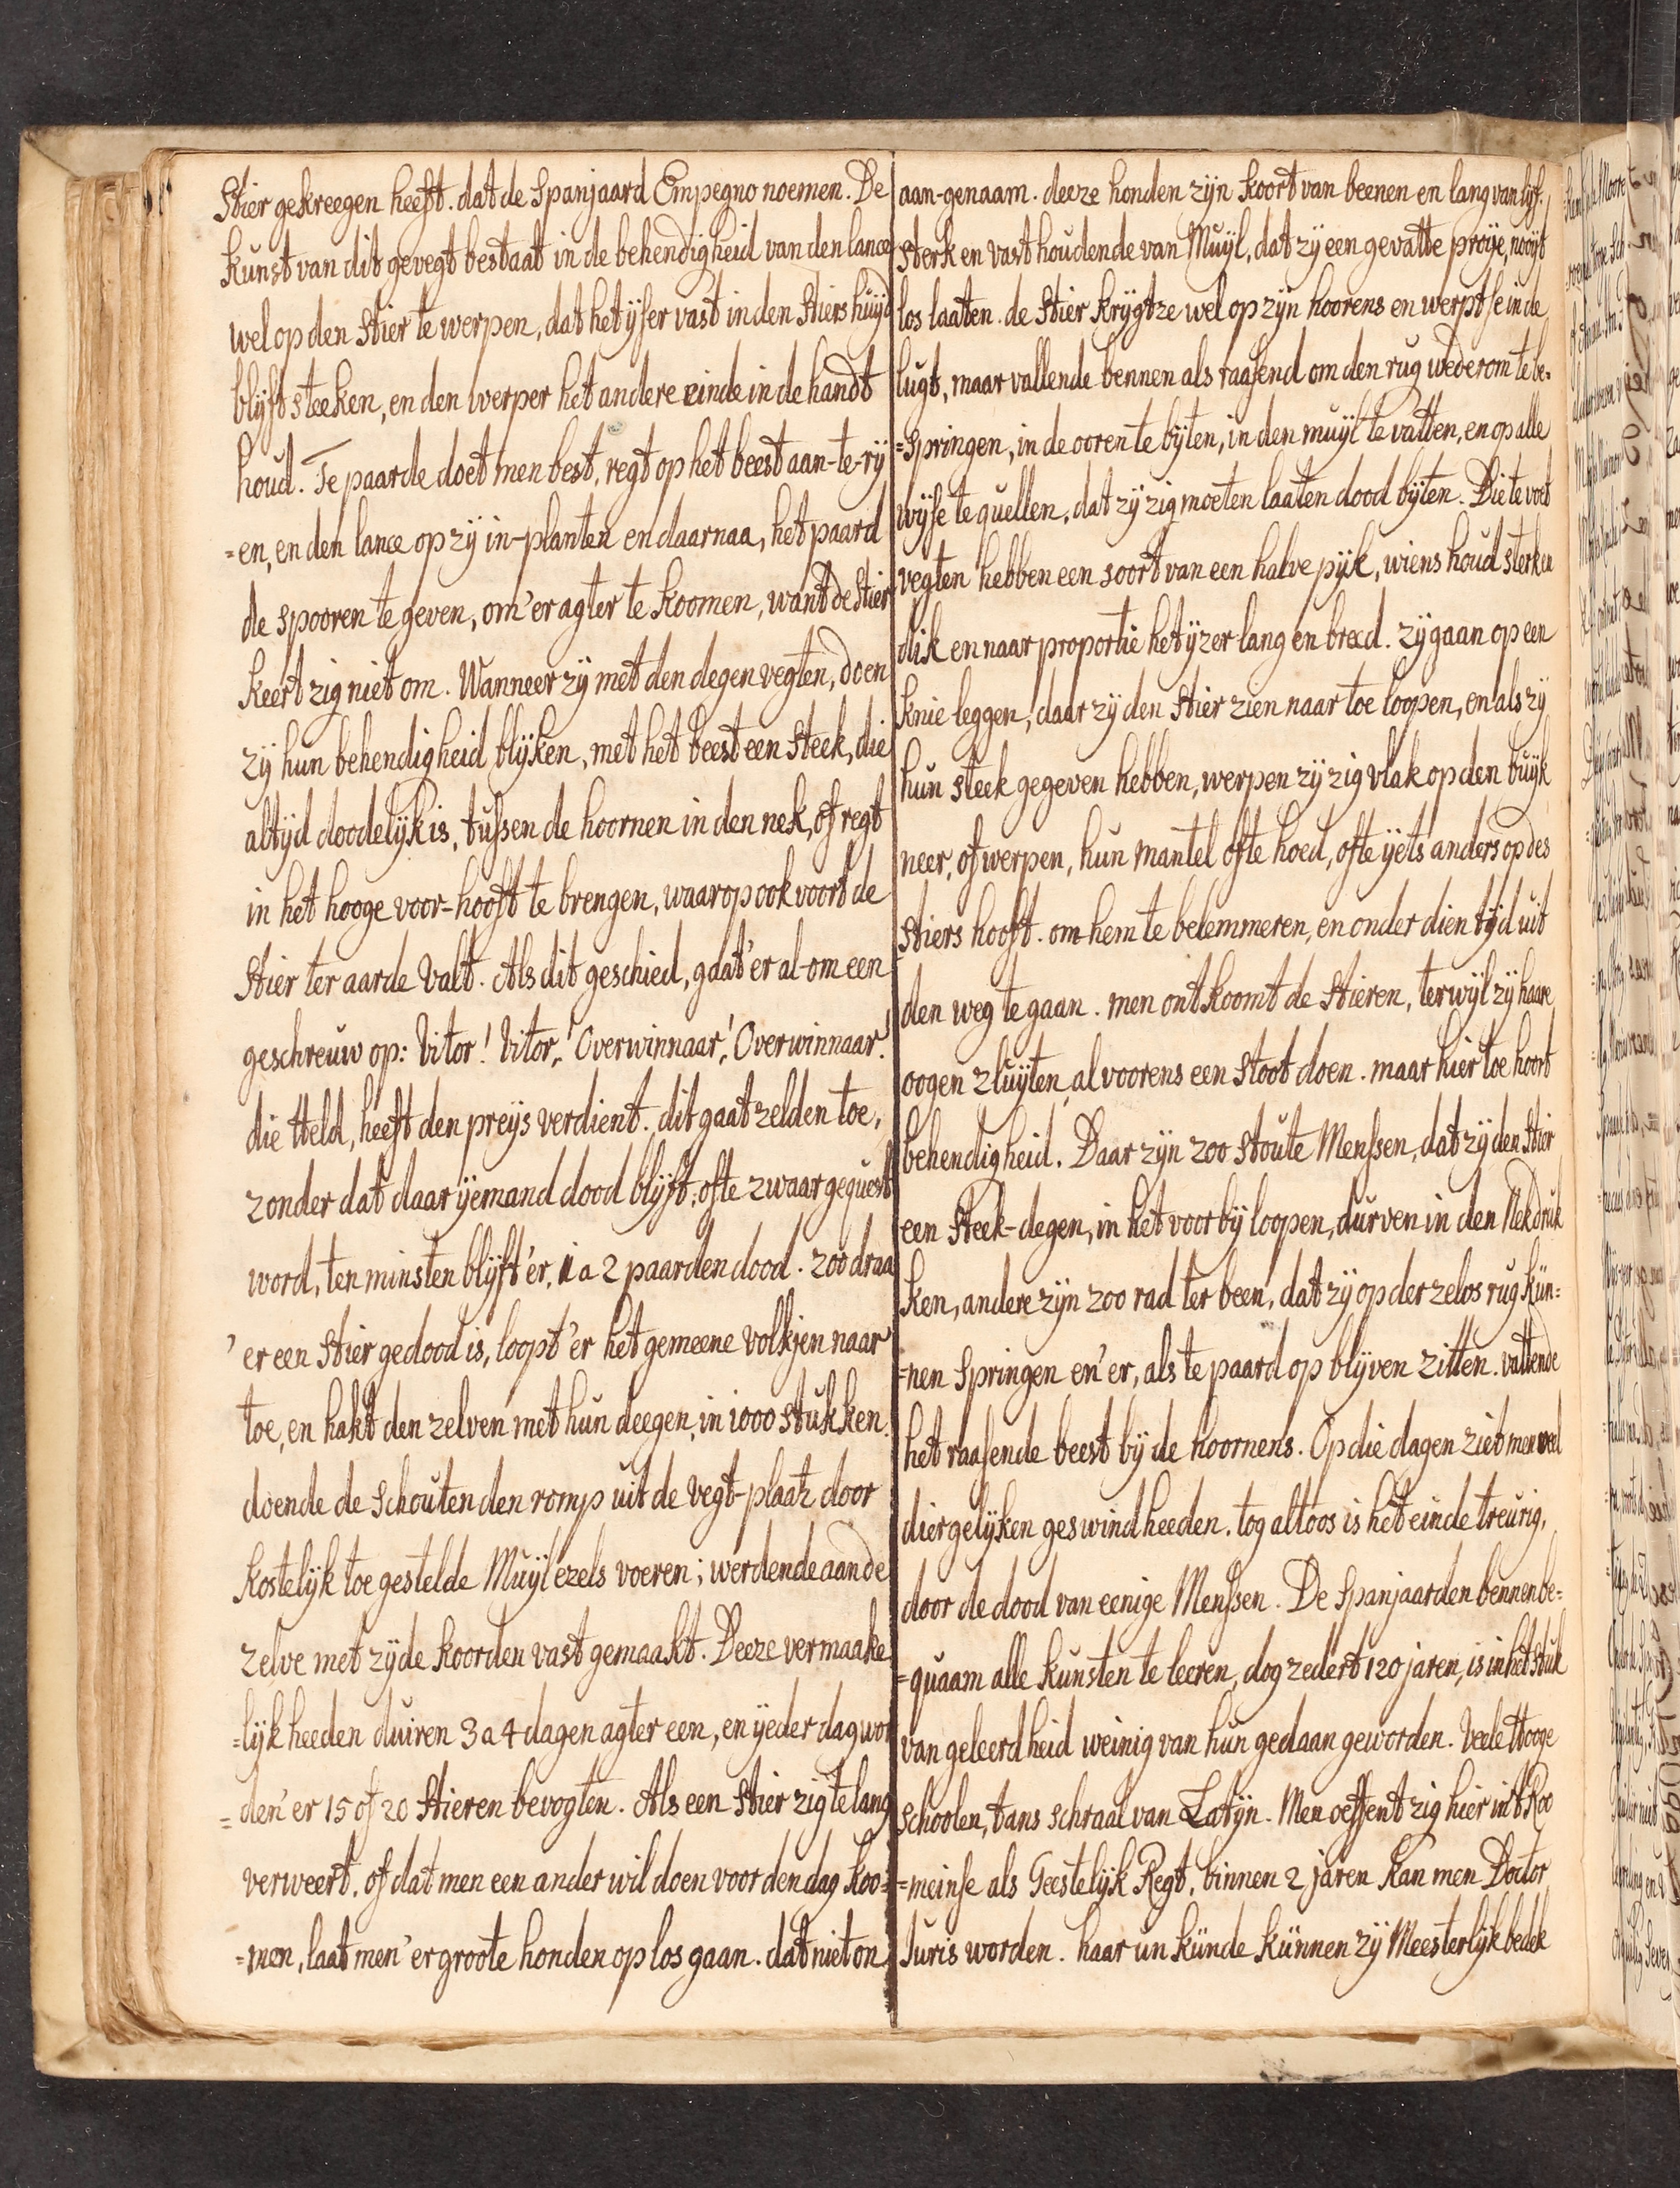 Stier gekreegen heeft. dat de Spanjaard Empegno noemen. De
kunst van dit gevegt bestaat in de behendigheid van den lance
wel op den Stier te werpen, dat het ijser vast in den Stiers huijd
blijft steeken, en den werper het andere einde in de handt
houd. Te paarde doet men best, regt op het beest aan-te-rij
=en, en den lance op zij in-planten en daarnaa, het paard
de spooren te geven, om 'er agter te koomen, want de Stier
keert zig niet om. Wanneer zij met den degen vegten, doen
zij hun behendigheid blijken, met het beest een steek, die
altijd doodelijk is, tussen de hoornen in den nek, of regt
in het hooge voor-hooft te brengen, waar op ook voort de
Stier ter aarde valt. Als dit geschied, gaat 'er al-om een
geschreuw op: Vitor! Vitor,! Overwinnaar,! Overwinnaar!
die Held, heeft den preijs verdient. dit gaat zelden toe,
zonder dat daar ijemand dood blijft, ofte zwaar gequest
word, ten minsten blijft 'er, 1 a 2 paarden dood. zoo draa
'er een Stier gedood is, loopt 'er het gemeene volkjen naar
toe, en hakt den zelven met hun deegen, in 1000 stukken.
doende de Schouten den romp uit de vegt-plaatz door
kostelijk toe gestelde Muijl ezels voeren; werdende aan de
zelve met zijde koorden vast gemaakt. Deeze vermaake
=lijk heeden duiren 3 a 4 dagen agter een, en ijeder dag wor
=den 'er 15 of 20 Stieren bevogten. Als een Stier zig te lang
verweert, of dat men een ander wil doen voor den dag koo=
=men, laat men 'er groote honden op los gaan. dat niet on
aan-genaam. deeze honden zijn koort van beenen en lang van lijf.
sterk en vast houdende van Muijl, dat zij een gevatte proije, nooijt
los laaten. de Stier krijgtze wel op zijn hoorens en werpt se in de
lugt, maar vallende bennen als raasend om den rug wederom te be=
=springen, in de ooren te bijten, in den muijl te vatten, en op alle
wijse te quellen, dat zij zig moeten laaten dood bijten. Die te voet
vegten hebben een soort van een halve pijk, wiens houd sterk en
dik en naar proportie het ijzer lang en breed. zij gaan op een
knie leggen, daar zij den Stier zien naar toe loopen, en als zij
hun steek gegeven hebben, werpen zij zig vlak op den buijk
neer, of werpen, hun mantel ofte hoed, ofte ijets anders op des
Stiers hooft. om hem te belemmeren, en onder dien tijd uit
den weg te gaan. men ontkoomt de Stieren, terwijl zij haare
oogen zluijten, al voorens een stoot doen. maar hier toe hoort
behendigheid. Daar zijn zoo stoute Menssen, dat zij den Stier
een Steek-degen, in het voorbij loopen, durven in den Nek druk
ken, andere zijn zoo rad ter been, dat zij op derzelvs rug kün=
=nen springen en 'er, als te paard op blijven zitten. vattende
het raasende beest bij de hoornens. Op die dagen ziet men veel
diergelijken geswindheeden. tog altoos is het einde treurig,
door de dood van eenige Menssen. De Spanjaarden bennen be=
=quaam alle kunsten te leeren, dog zedert 120 jaren, is in het stuk
van geleerdheid weinig van hun gedaan geworden. Veele Hooge
schoolen, tans schraal van Latijn. Men oeffent zig hier in 't Roo
=meinse als Geestelijk Regt, binnen 2 jaren kan men Doctor
Juris worden. haar unkünde künnen zij Meesterlijk bedek